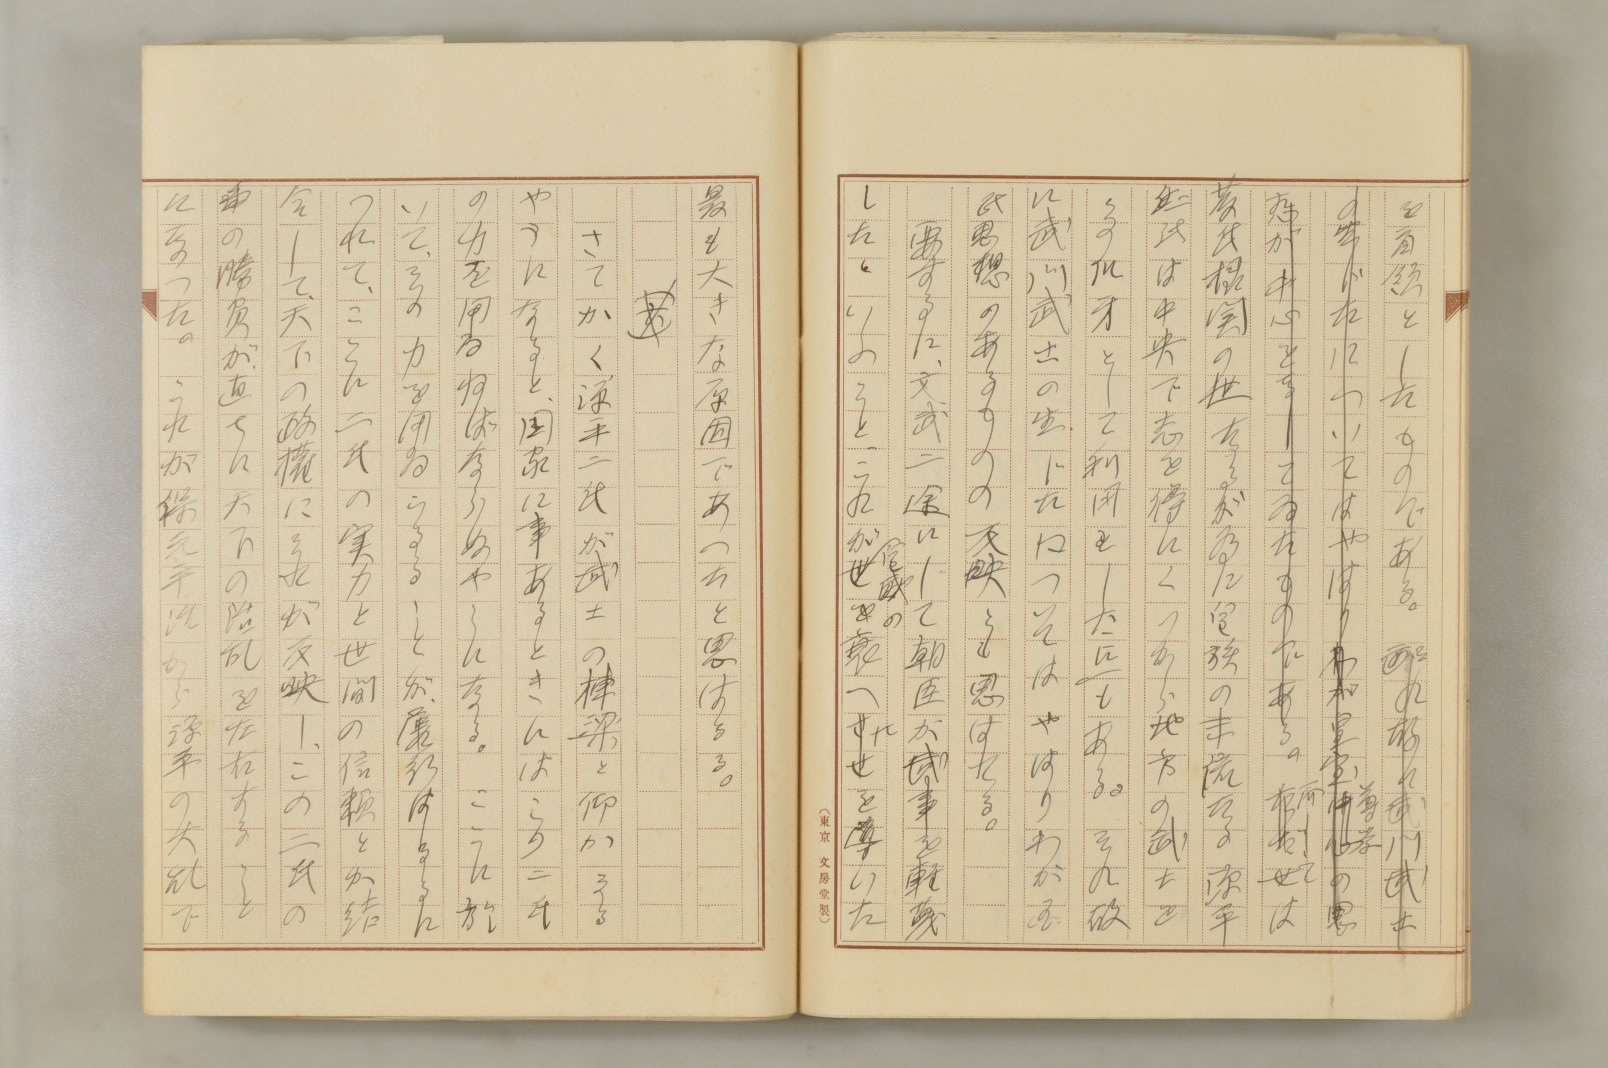 を首領としたものである。それ故に武川武士
の生じたについてはやはりわが皇室中心の思
尊崇
想が中心をなしてゐたものである。
而して
藤氏摂関の世
官族の末流なる源平
二氏は中央で志を得にくつから地方の武士と
その爪牙として利用をしたにもある。それ故
に武川武士の生じたについてはやはりわが国
民思想のあるものの反映とも思はれる。
要するに、文武二途にして朝臣が武事を軽蔑
したといふこと、これが世を衰へさせを導いた
官威の
最も大きな原因であつたと思はるる。
さてかく源平二氏が武士の棟梁と仰かるる
やうになると、国家に事あるときにはこの二氏
の力を用ゐねばならぬやうになる。ここに於
いて、その力を用ゐらるることが屢行はるるに
つれて、ここに二氏の実力と世間の信頼とが結
合して、天下の政権にそれが反映し、この二氏の
事の勝負が直ちに天下の騒乱をなすること
になつた。これが保元平治から源平の大乱で
(東京 文房堂製)